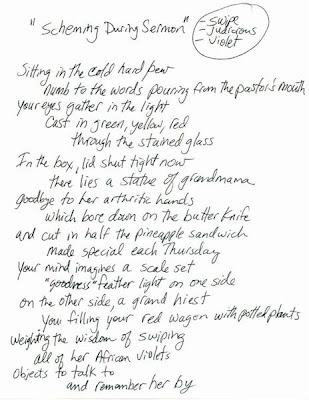 "Scheming During Sermon"
- swipe
- Judicious
- violet
Sitting in the cold hard pew
numb to the words pouring from the pastor's mouth
Your eyes gather in the light
Cast in green, yellow, red
through the stained glass
In the box, lid shut tight now
there lies a statue of grandmama
goodbye to her arthritic hands
which bore down on the butter knife
and cut in half the pineapple sandwich
made special each Thursday
Your mind imagines a scale set
"goodness" feather light on one side
on the other side, a grand hiest
You filling your red wagon with potted plants
Weighting the wisdom of swiping
all of her African Violets
Objects to talk to
and remember her by